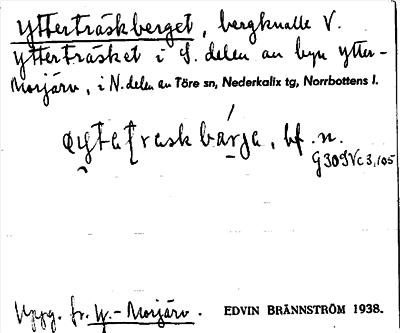 Ytterträskberget, bergknalle V.
Ytterträsket i S. delen av byn Ytter-
Morjärv, i N. delen av Töre sn, Nederkalix tg, Norrbottens l.
bf. n.
G30SVc3,105
Uppg. fr. Y.-Morjärv. EDVIN BRÄNNSTRÖM 1938.